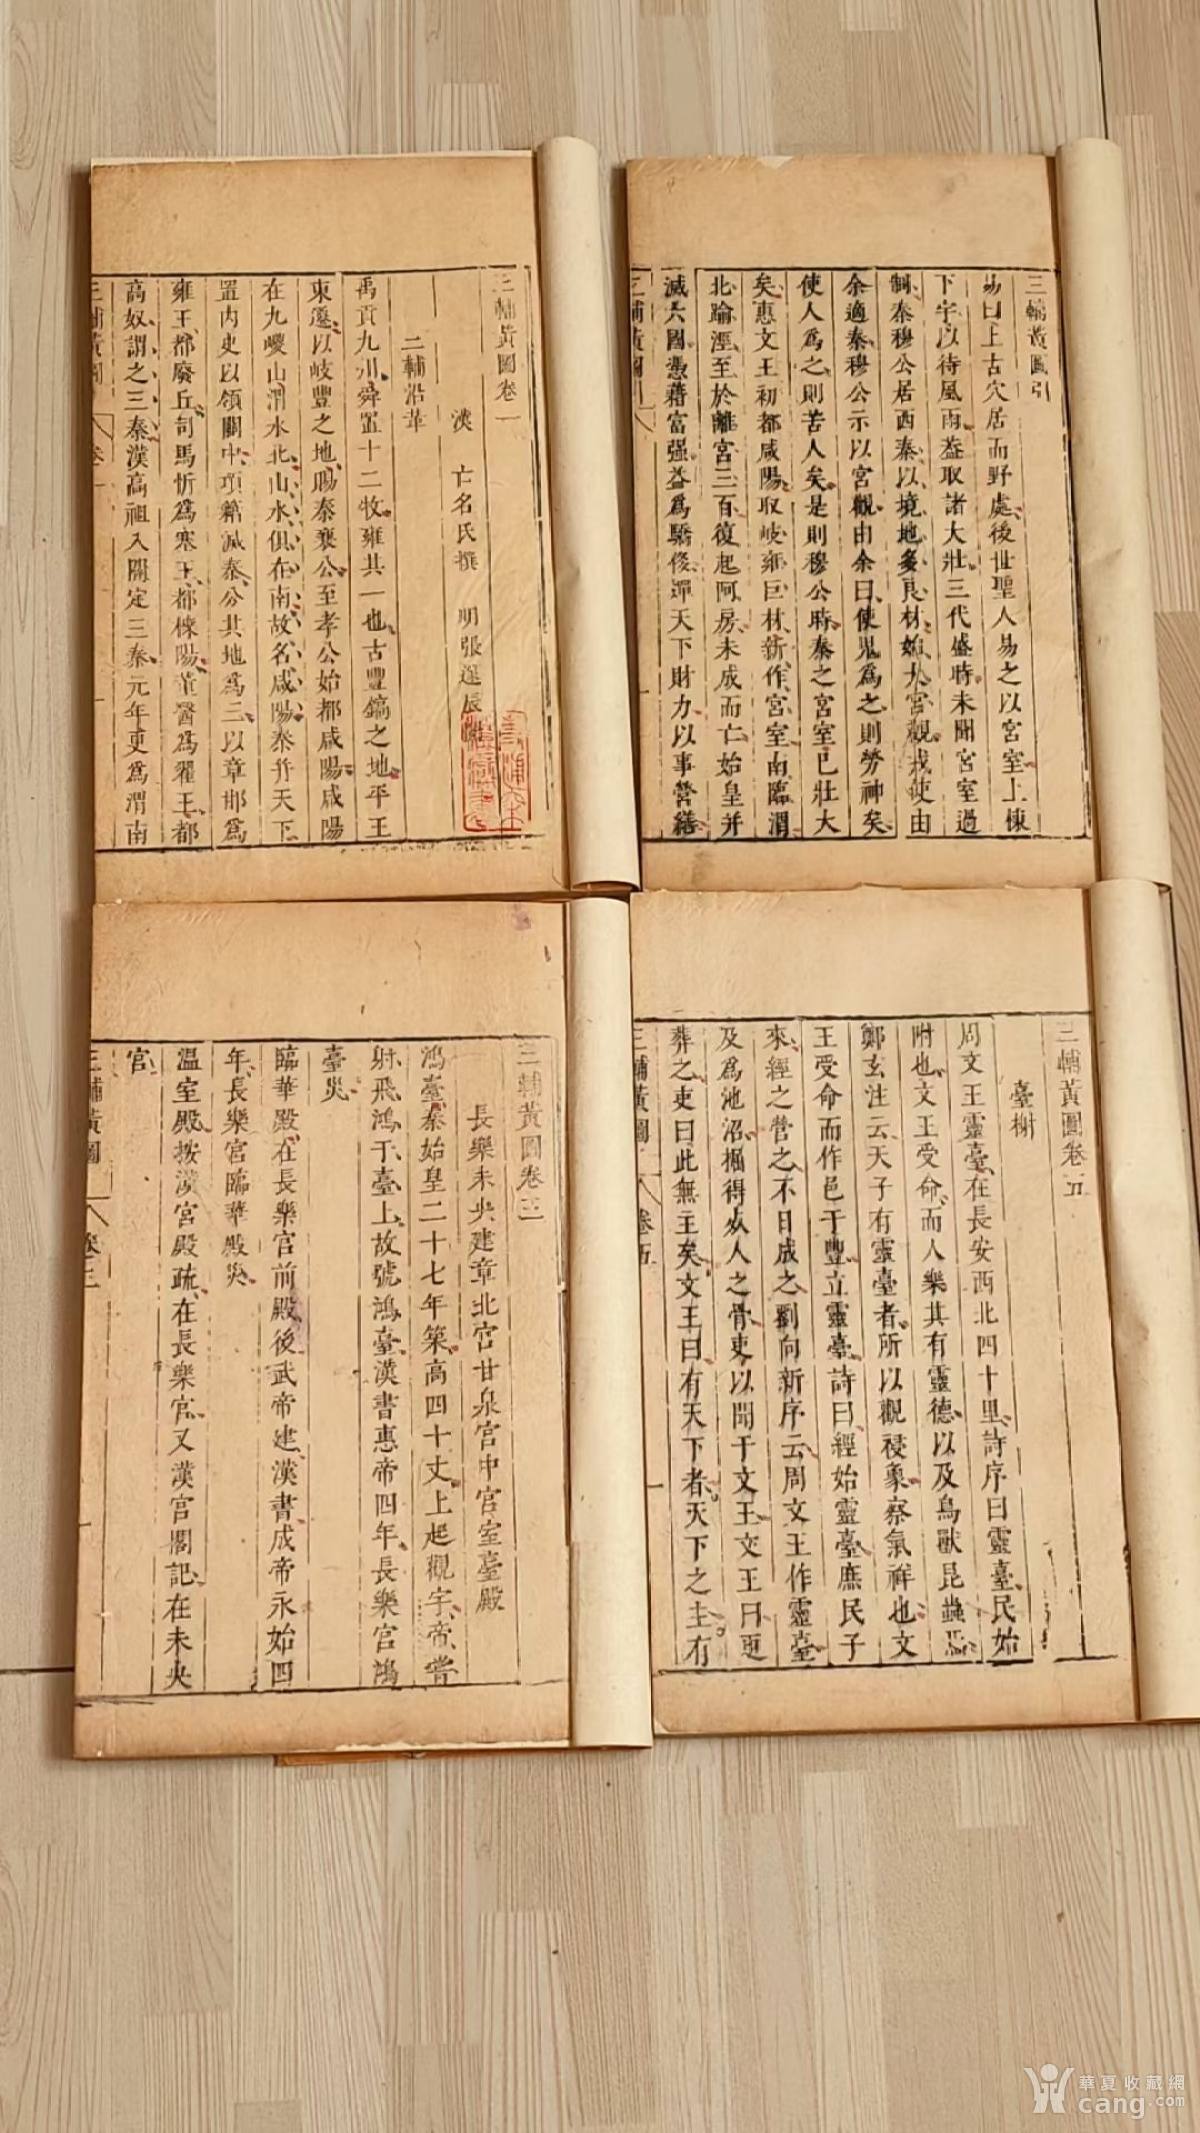 三輔黃圖引
易曰上古穴居而野處後世聖人易之以宮室上棟
下宇以待風雨蓋取諸大壯三代盛時未聞宮室過
制秦穆公居西秦以境地多良材始大宮觀戎使由
余適秦穆公示以宮觀由余曰使鬼爲之則勞神矣
使人爲之則苦人矣是則穆公時秦之宮室已壯大
矣惠文王初都咸陽取岐雍巨材新作宮室南臨渭
北踰涇至於離宮三百復起阿房未成而亡始皇并
滅六國憑藉富强益爲驕侈殫天下財力以事營繕
三輔黃圖引
三輔黃圖卷一
漢 亡名氏撰 明張遂辰閱
三輔沿革
禹貢九州舜置十二牧雍其一也古豐鎬之地平王
東遷以岐豐之地賜秦襄公至孝公始都咸陽咸陽
在九嵕山渭水北山水俱在南故名咸陽秦并天下
置內史以領關中項籍滅秦分其地爲三以章邯爲
雍王都廢丘司馬忻爲塞王都櫟陽董翳爲翟王都
高奴謂之三秦漢高祖入關定三秦元年更爲渭南
三輔黃圖 卷一 一
三輔黃圖卷五
臺榭
周文王靈臺在長安西北四十里詩序曰靈臺民始
附也文王受命而人樂其有靈德以及鳥獸昆蟲焉
鄭玄注云天子有靈臺者所以觀祲象察氣祥也文
王受命而作邑于豐立靈臺詩曰經始靈臺庶民子
來經之營之不日成之劉向新序云周文王作靈臺
及爲池沼掘得死人之骨吏以聞于文王文王曰更
葬之吏曰此無主矣文王曰有天下者天下之主有
三輔黃圖 卷五 一
三輔黃圖卷三
長樂未央建章北宮甘泉宮中宮室臺殿
鴻臺秦始皇二十七年築高四十丈上起觀宇帝嘗
射飛鴻于臺上故號鴻臺漢書惠帝四年長樂宮鴻
臺災
臨華殿在長樂宮前殿後武帝建漢書成帝永始四
年長樂宮臨華殿災
溫室殿按漢宮殿疏在長樂宮又漢宮閣記在未央
宮
三輔黃圖 卷三 一
華夏收藏網
cang.com